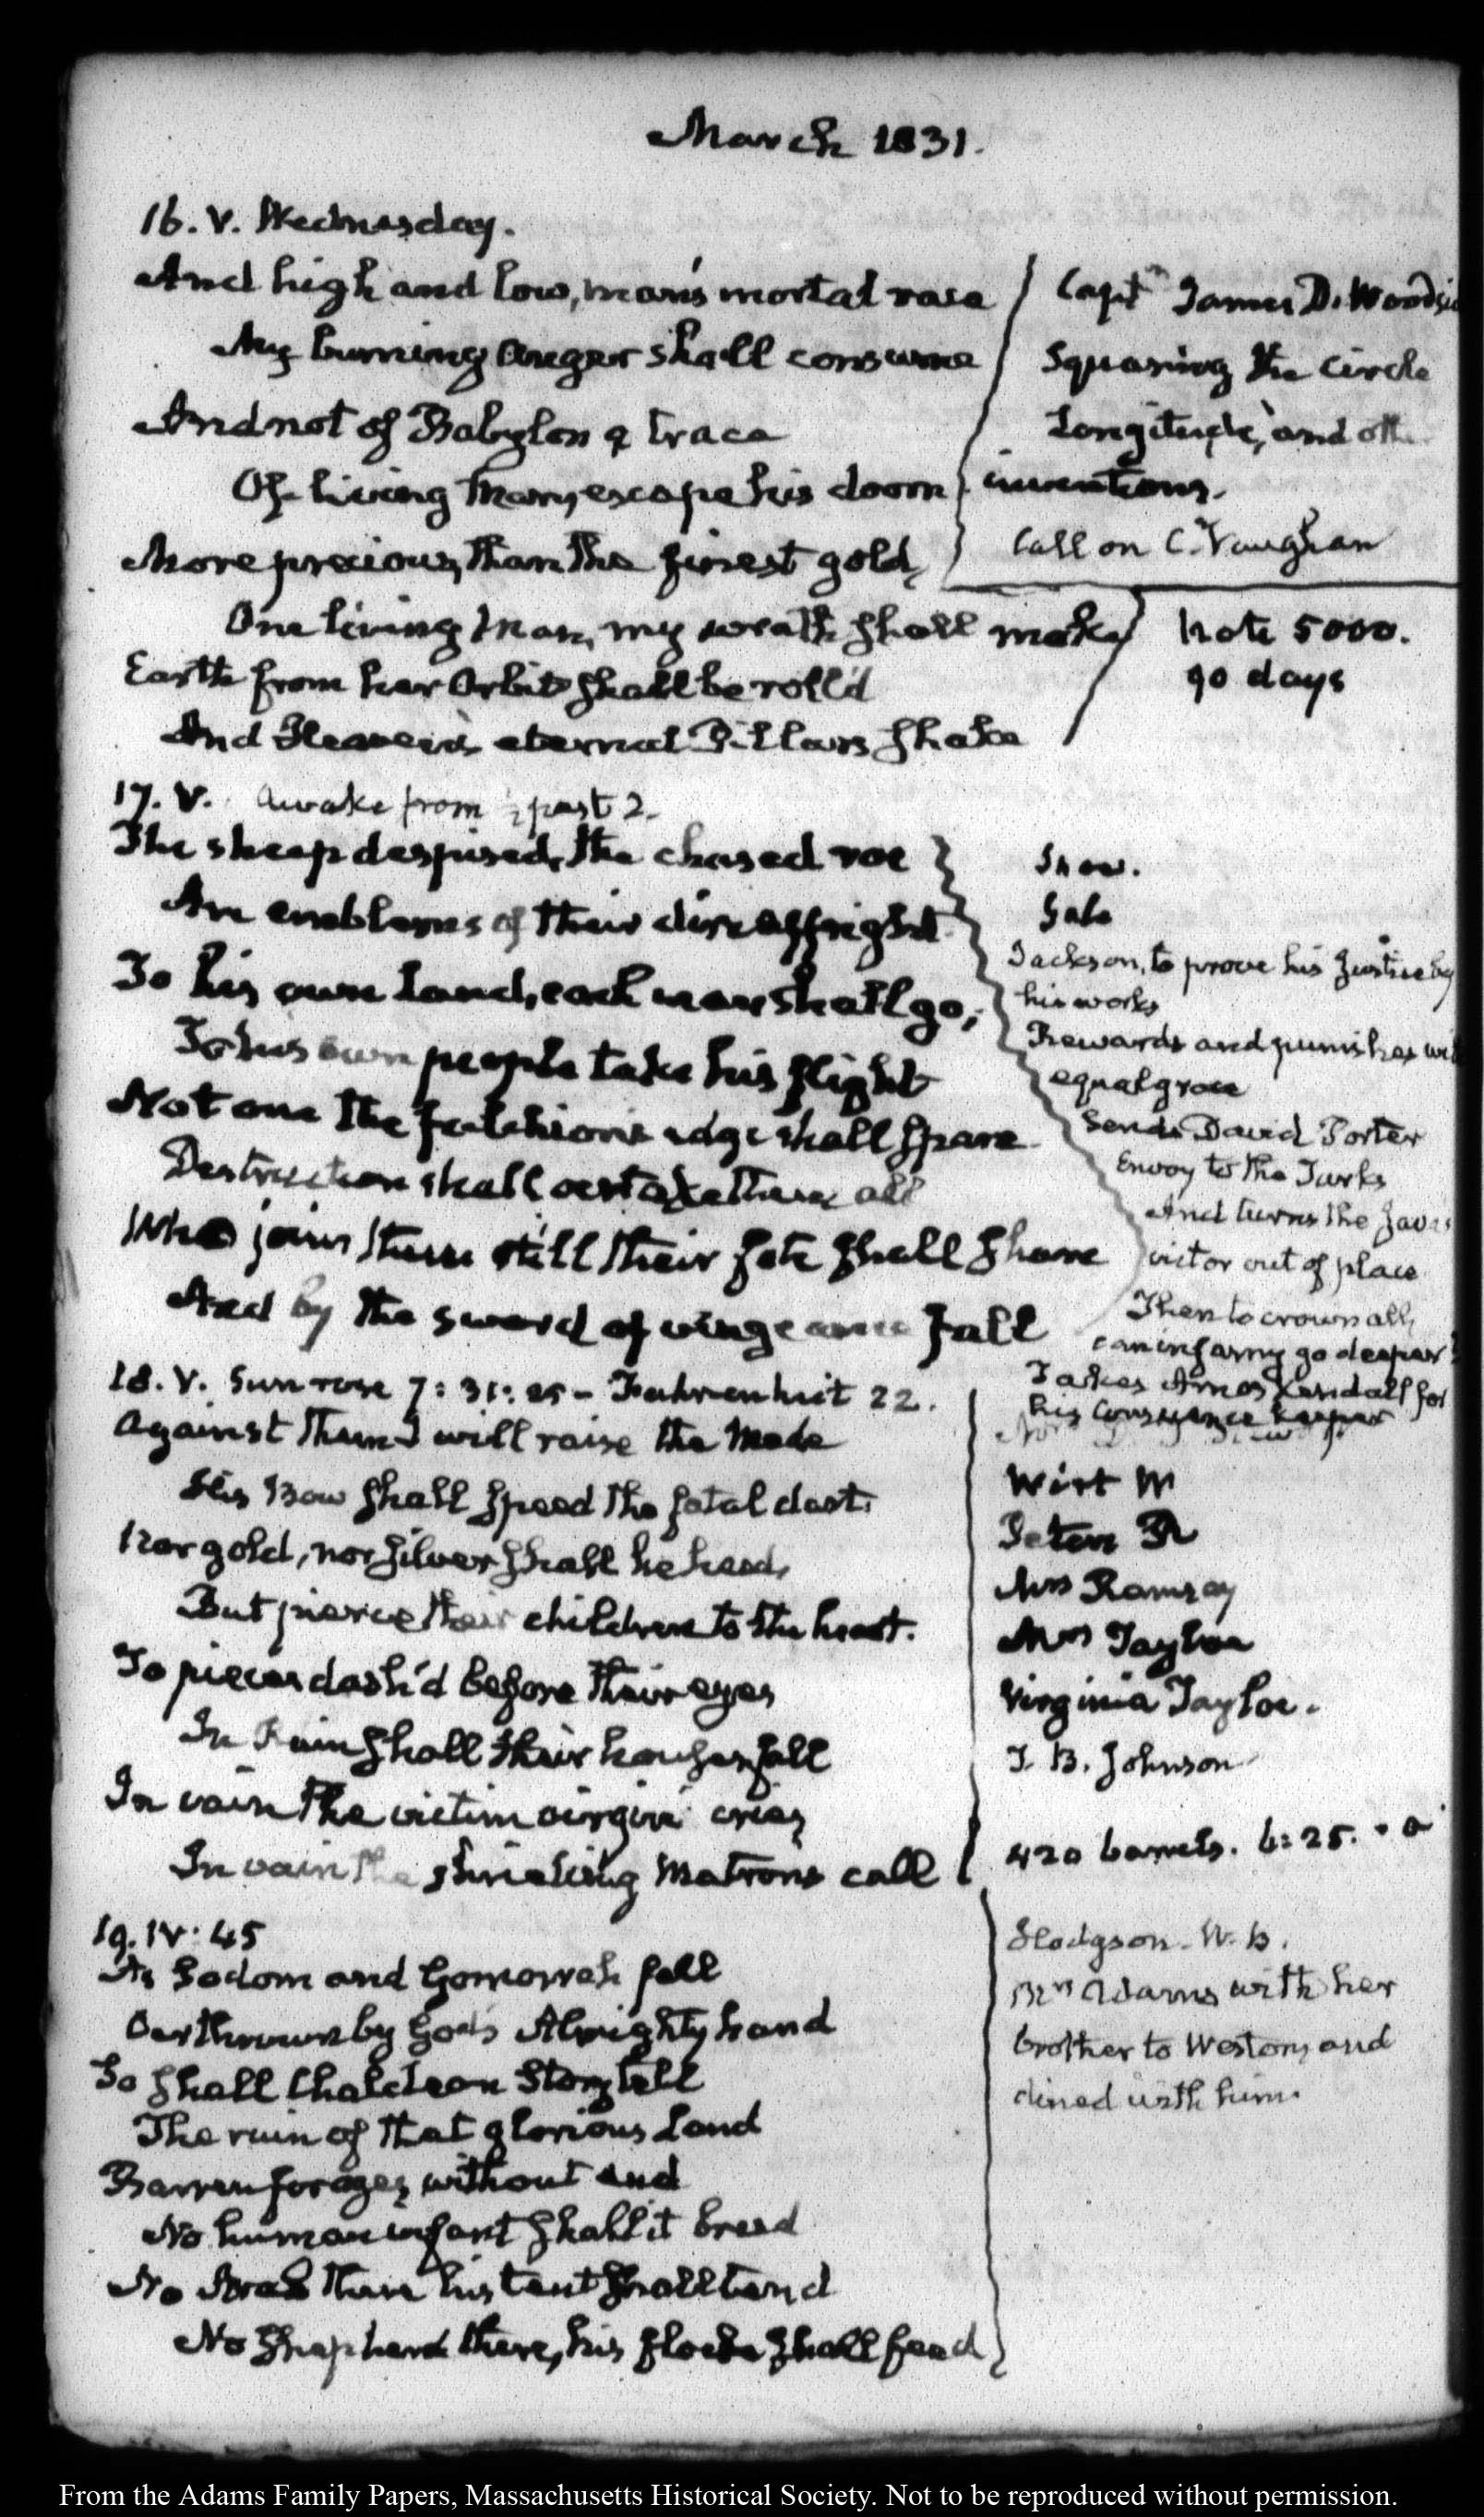 March 1831.
16. V. Wednesday.
And high and low, man's mortal race
My burning anger shall consume
And not of Babylon a trace
Of living Man, escape his doom
More precious, than the finest gold,
One living Man, my wrath shall make
Earth from her Orbit shall be roll'd
And Heaven's eternal Pillars shake
Capt.n James D. Woodsi
Squaring the circle
Longitude, and oth
inventions.
Call on C. Vaughan
Note 5000.
90 days
17. V. Awake from ½ past 2.
The sheep despised, the chased roe
Are emblems of their dire affright
To his own Land, each man shall go,
To his own people take his flight
Not one the falchion's edge shall spare
Destruction shall overtake them all
Who joins them still their fate shall share
And by the sword of vengeance fall
Snow.
Gale
Jackson, to prove his Justice by
his works
Rewards and punishes wi
equal grace
Sends David Porter
Envoy to the Turks
And turns the Java's
victor out of place
Then to crown all,
can infamy go deeper?
Takes Amos Kendall for
his Conscience keeper
18. V. Sun rose 7: 31: 25 - Fahrenheit 22.
Against them I will raise the Mede
His Bow shall speed the fatal dart.
Nor gold, nor silver shall he heed,
But pierce their children to the heart.
To pieces dash'd before their eyes
In Ruin shall their houses fall
In vain the victim virgin cries
In vain the shrieking Matrons call
Wirt W
Peters R
Mrs Ramsay
Mrs Tayloe
Virginia Tayloe.
T. B. Johnson
420 barrels. 6:25.
19. IV: 45
As Sodom and Gomorrah fell
Overthrown by God's Almighty hand
So shall Chaldean Story tell
The ruin of that glorious Land
Barren for ages, without end
No human infant shall it breed
No Arab there his tent shall tend
No Shepherd there, his flocks shall feed
Hodgson. W. B.
Mrs Adams with her
brother to Weston, and
dined with him.
From the Adams Family Papers, Massachusetts Historical Society. Not to be reproduced without permission.